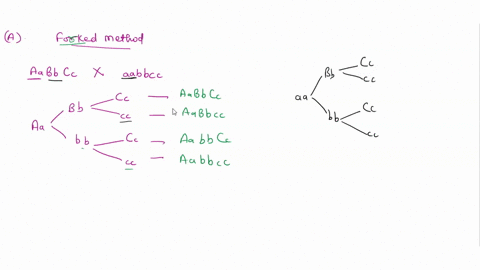 (A) Forked method
AaBbCc X aabbcc
Cc AaBbCc
Bb
cc AaBbcc
Aa
Cc AabbCc
bb
cc Aabbcc
Cc
Bb
cc
aa
Cc
bb
cc